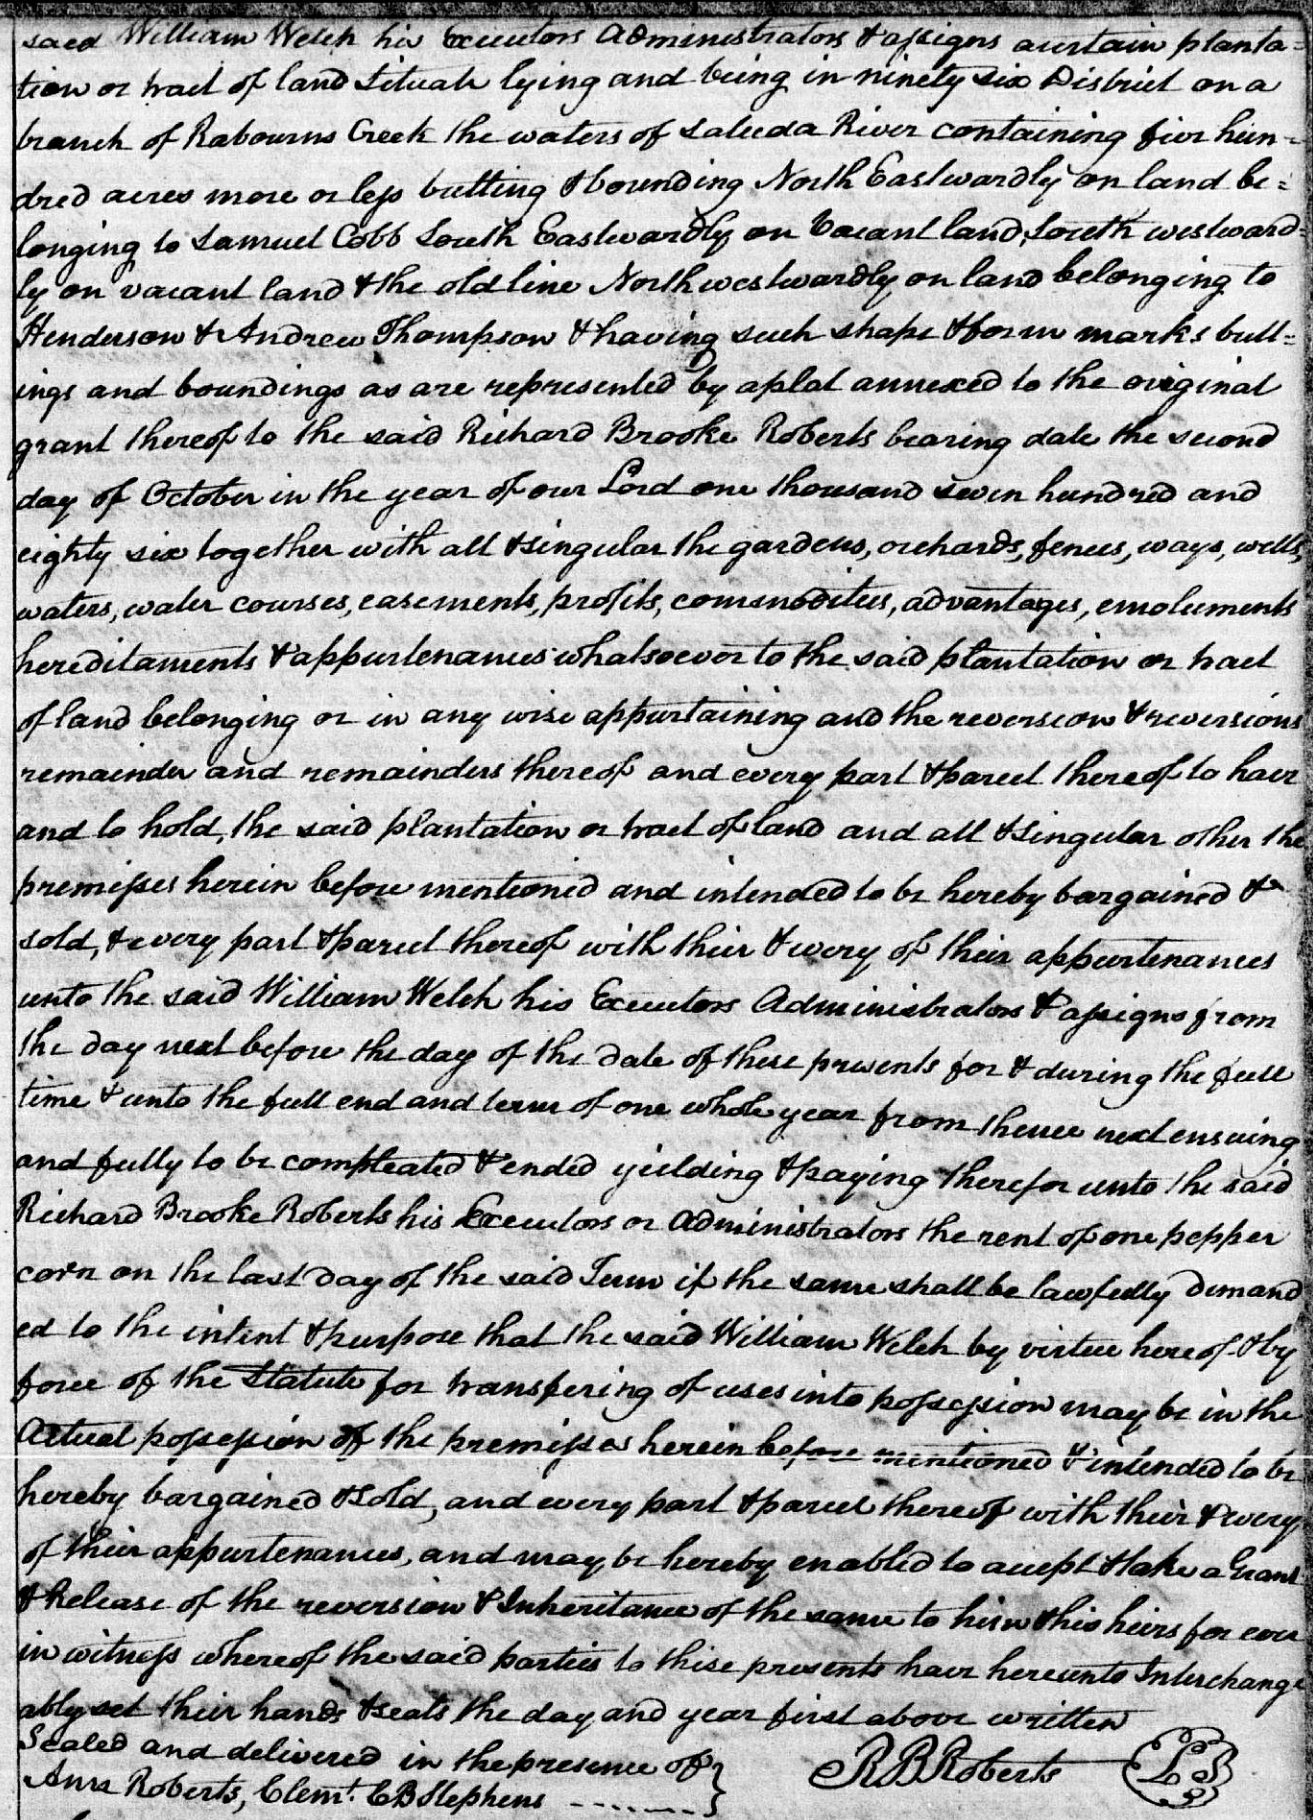 said William Welch his Executors Administrators & assigns a certain planta=
tion or tract of land Situate lying and being in ninety six District on a
branch of Rabourns Creek the waters of Saluda River containing five hun=
dred acres more or less butting & bounding North Eastwardly on land be=
longing to Samuel Cobb South Eastwardly on Vacant land, South westward=
ly on vacant land & the old line North westwardly on land belonging to
Henderson & Andrew Thompson & having such shape & form marks butt=
ings and boundings as are represented by a plat annexed to the original
grant thereof to the said Richard Brooke Roberts bearing date the second
day of October in the year of our Lord one thousand seven hundred and
eighty six together with all & singular the gardens, orchards, fences, ways, wells,
waters, water courses, easements, profits, commodities, advantages, emoluments
hereditaments & appurtenances whatsoever to the said plantation or tract
of land belonging or in any wise appurtaining and the reversion & reversions
remainder and remainders thereof and every part & parcel thereof to have
and to hold, the said plantation or tract of land and all & singular other the
premisses herein before mentioned and intended to be hereby bargained &
sold, & every part & parcel thereof with their & every of their appurtenances
unto the said William Welch his Executors Administrators & assigns from
the day next before the day of the date of these presents for & during the full
time & unto the full end and term of one whole year from thence next ensuing
and fully to be compleated & ended yielding & paying therefor unto the said
Richard Brooke Roberts his Executors or Administrators the rent of one pepper
corn on the last day of the said Term if the same shall be lawfully demand
ed to the intent & purpose that the said William Welch by virtue hereof & by
force of the Statute for transfering of uses into possession may be in the
Actual possession of the premisses herein before mentioned & intended to be
hereby bargained & sold, and every part & parcel thereof with their & every
of their appurtenances, and may be hereby enabled to accept & take a Grant
& Release of the reversion & Inheritance of the same to him & his heirs for ever
in witness whereof the said parties to these presents have hereunto Interchange
ably set their hands & seals the day and year first above written
Sealed and delivered in the presence of } R B Roberts L S
Ann Roberts, Clemt. C B Stephens